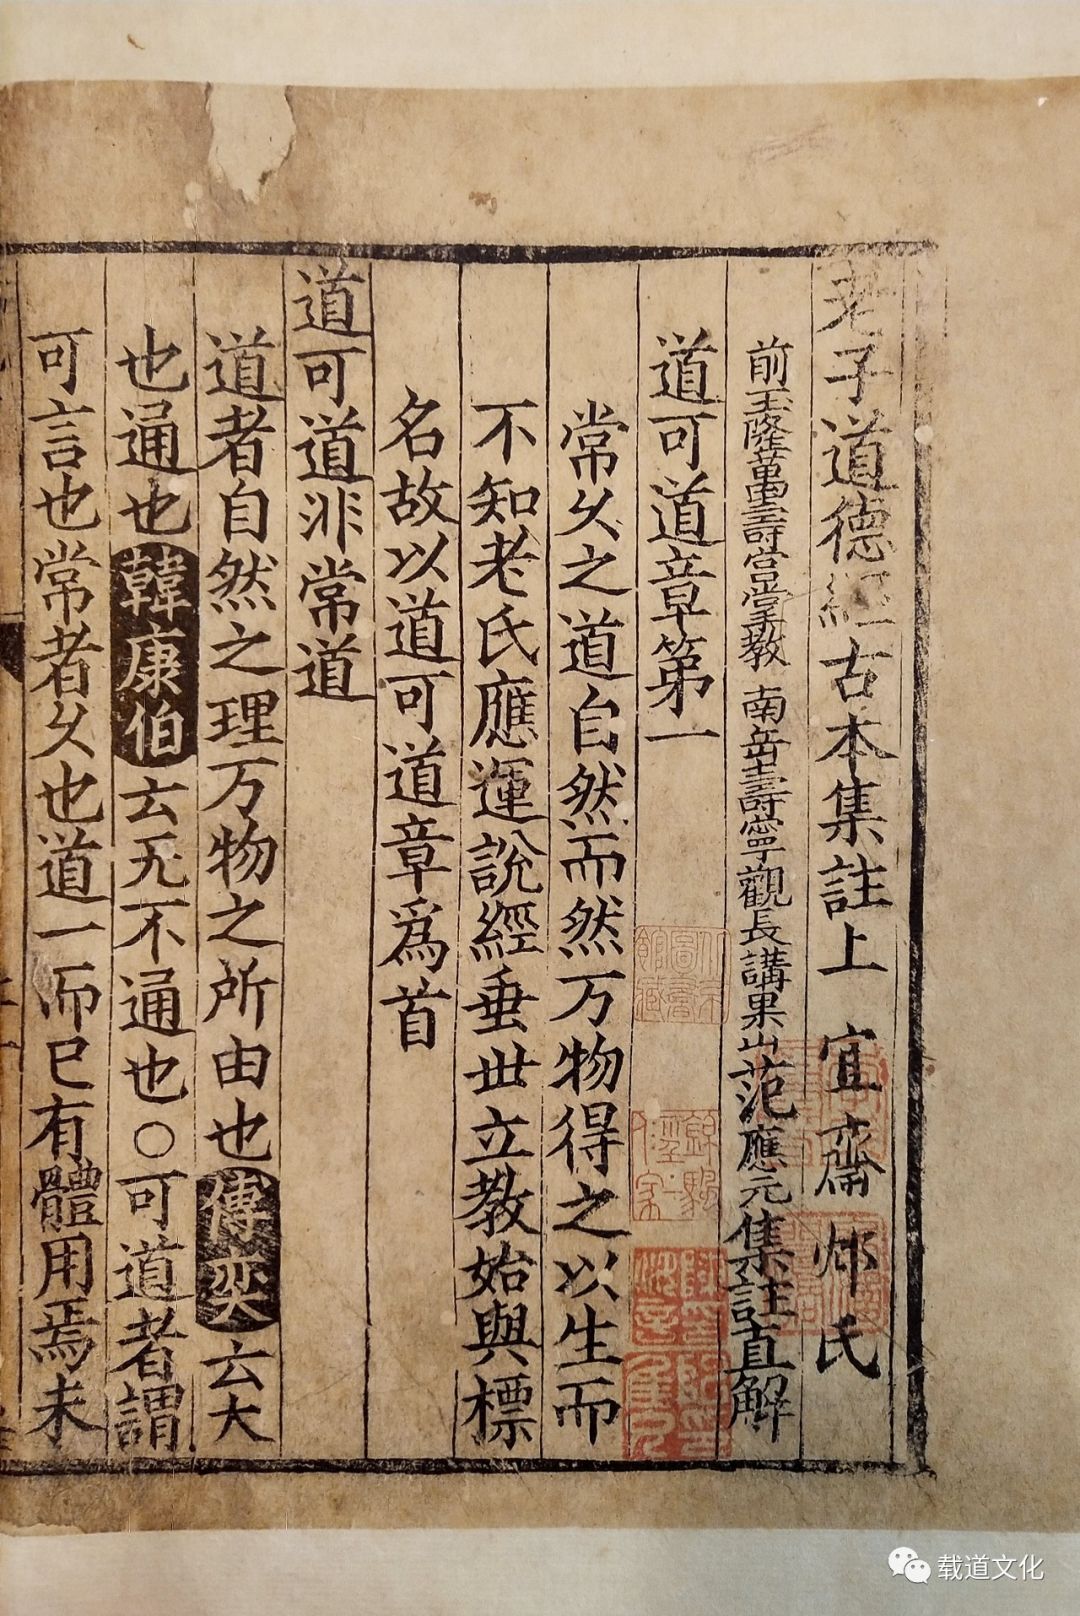 老子道德經古本集註上　宜齋　邺氏
前玉隆萬壽宮掌教　南岳壽寧觀長講果山范應元集註直解
道可道章第一
常久之道自然而然万物得之以生而
不知老氏應運說經垂世立教始與標
名故以道可道章爲首
道可道非常道
道者自然之理万物之所由也傅奕云大
也通也韓康伯云无不通也○可道者謂
可言也常者久也道一而已有體用焉未
载道文化